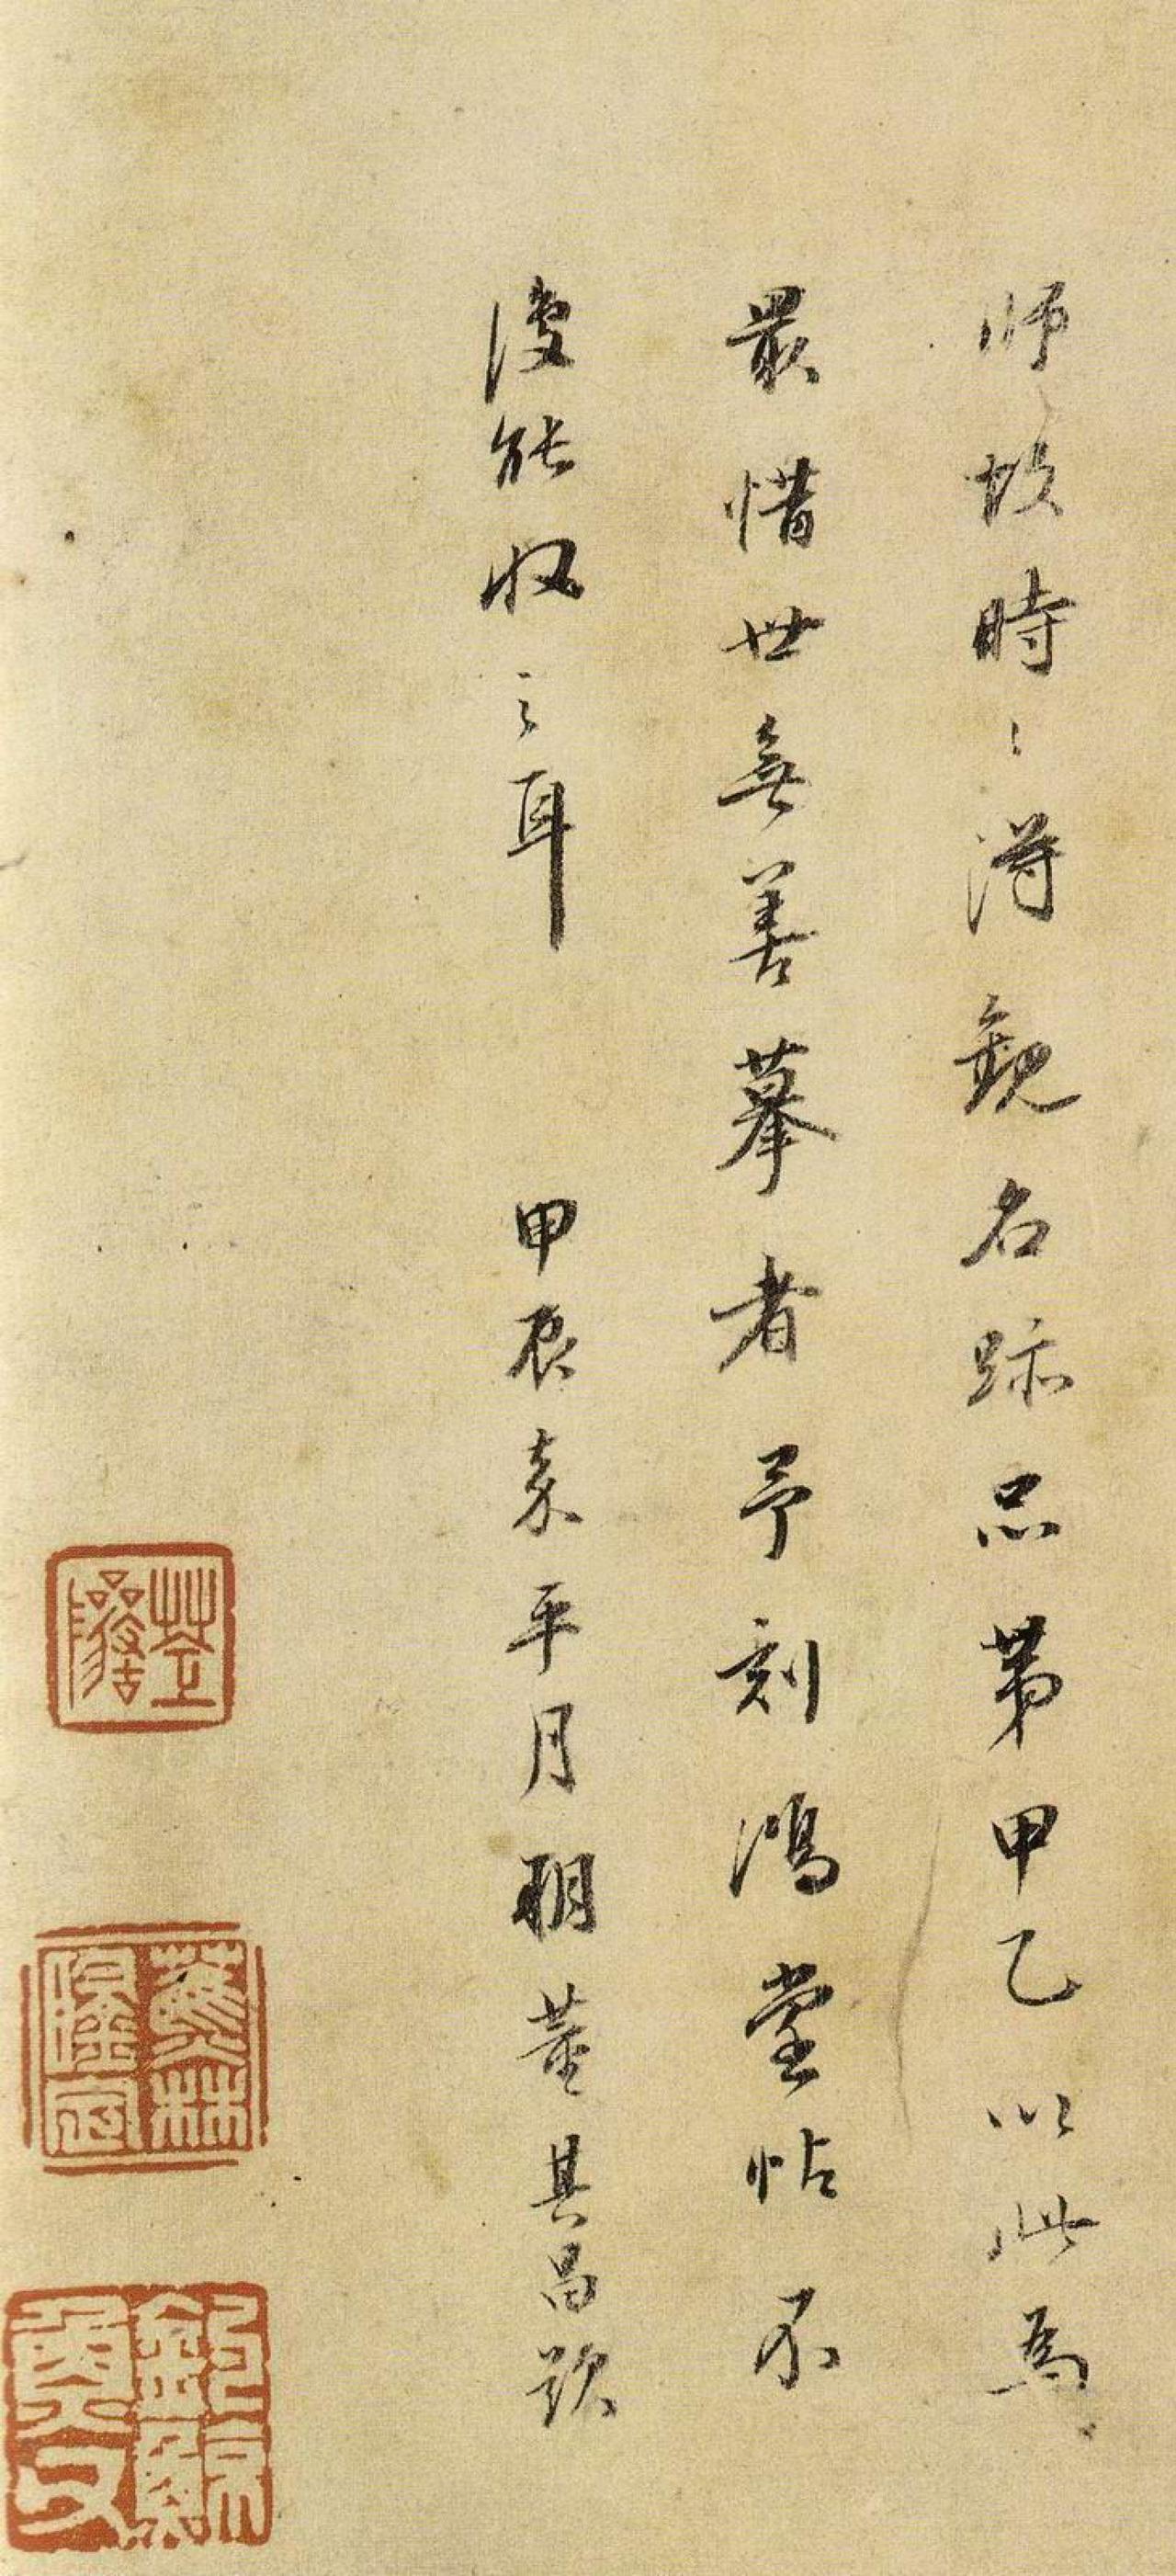 師故時〻得觀名跡品第甲乙以此為
最惜世無善摹者予刻鴻堂帖不
復能收之耳　甲辰嘉平月朔董其昌跋
蕉林